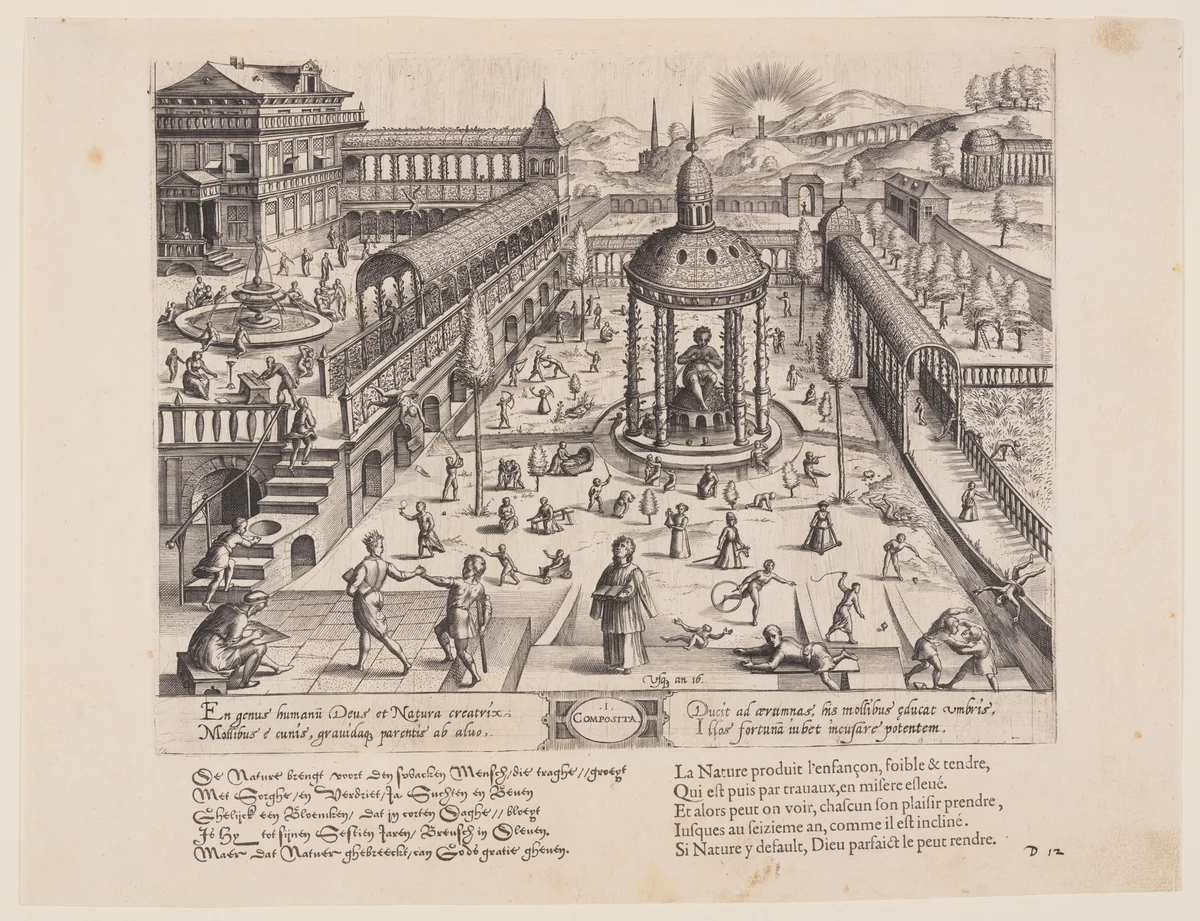 Usq, an 16.
En genus humanū Deus et Natura creatrix
Mollibus e cunis, grauidaq, parentis ab aluo.
.I.
COMPOSITA.
Ducit ad ærumnas, his mollibus educat vmbris,
Illos fortunā iubet incusare potentem.
De Nature brengt voort den swacken Mensch/die traghe//groeyt
Met Sorghe/en Verdriet/Ja Suchten en Beuen
Ghelijck een Bloemken/Dat in corten Daghe//bloeyt
Is Hy tot sijnen Sestien Jaren/
Maer Dat Natuer ghebreeckt/can Gods gratie gheuen.
La Nature produit l'enfançon, foible & tendre,
Qui est puis par trauaux, en misere esleué.
Et alors peut on voir, chascun son plaisir prendre,
Iusques au seizieme an, comme il est incliné.
Si Nature y default, Dieu parfaict le peut rendre.
D 12